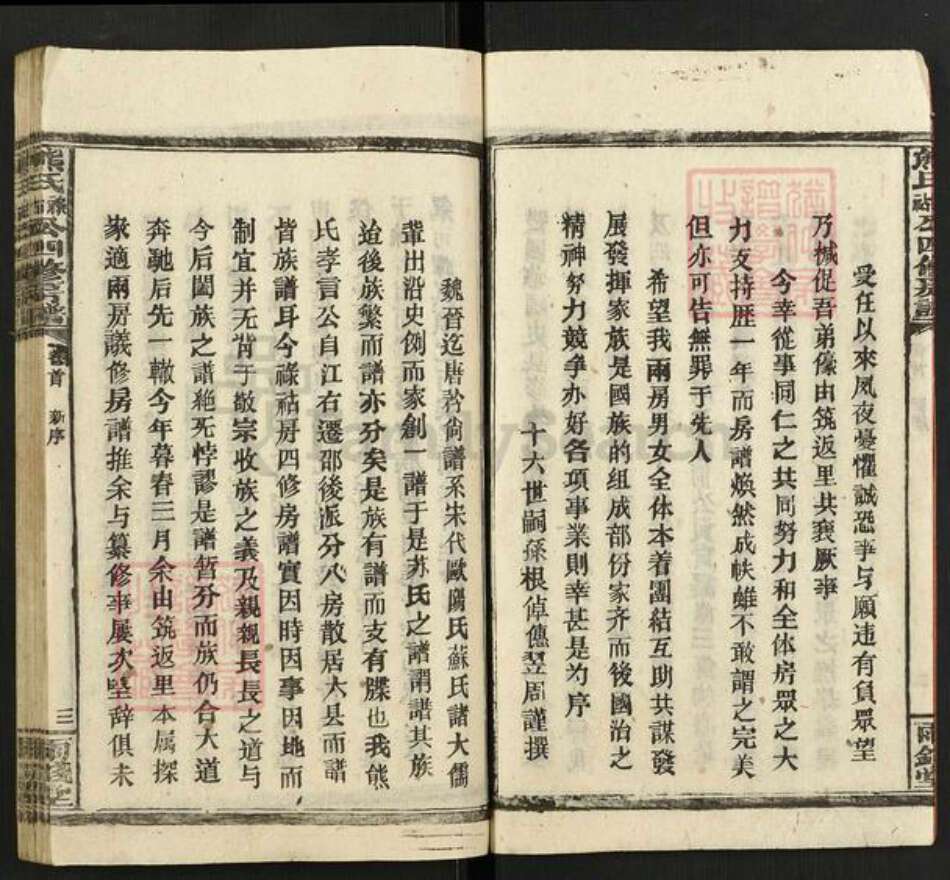 受任以來夙夜憂懼誠恐事与願违有負眾望
乃椷促吾弟傣由筑返里共襄厥事
今幸從事同仁之共同努力和全体房眾之大
力支持歷一年而房譜煥然成帙雖不敢謂之完美
但亦可告無罪于先人
希望我兩房男女全体本着團結互助共謀發
展發揮家族是國族的组成部份家齐而後國治之
精神努力競争办好各項事業則幸甚是为序
十六世嗣孫根倬傣翌周謹撰
魏晉迄唐矜尙譜系宋代歐陽氏蘇氏諸大儒
輩出沿史例而家創一譜于是苏氏之譜譜其族
迨後族繁而譜亦分矣是族有譜而支有牒也我熊
氏孝言公自江右遷邵後派分八房散居大县而譜
皆族譜耳今祿祜房四修房譜實因時因事因地而
制宜并无背于敬宗收族之義及親親長長之道与
今后闔族之譜絶无悖謬是譜暂分而族仍合大道
奔馳后先一轍今年暮春三月余由筑返里本属探
亲適兩房議修房譜推余与纂修事屢次堅辞俱未
熊氏 公四修房譜
卷首 新序
三